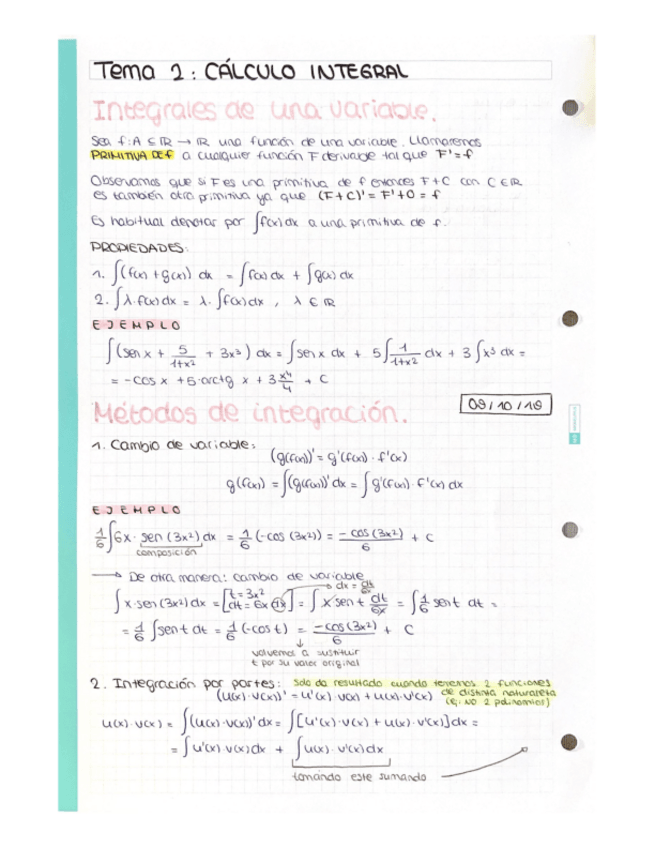 Tema 2: CÁLCULO INTEGRAL
Integrales de una variable.
Sea f: A ⊆ ℝ → ℝ una función de una variable. Llamaremos
PRIMITIVA DE f a cualquier función F derivable tal que F' = f
Observamos que si F es una primitiva de f entonces F + C con C ∈ ℝ
es también otra primitiva ya que (F+C)' = F' + 0 = f
Es habitual denotar por ∫f(x)dx a una primitiva de f.
PROPIEDADES:
1. ∫(f(x) + g(x)) dx = ∫f(x) dx + ∫g(x) dx
2. ∫λ·f(x) dx = λ·∫f(x) dx , λ ∈ ℝ
EJEMPLO
∫(sen x + 5/(1+x²) + 3x³) dx = ∫sen x dx + 5∫1/(1+x²) dx + 3∫x³ dx =
= -cos x + 5·arctg x + 3 x⁴/4 + C
Métodos de integración.
09/10/19
1. Cambio de variable:
(g(f(x)))' = g'(f(x))·f'(x)
g(f(x)) = ∫(g(f(x)))' dx = ∫g'(f(x))·f'(x) dx
EJEMPLO
1/6 ∫6x·sen(3x²) dx = 1/6 (-cos(3x²)) = -cos(3x²)/6 + C
composición
→ De otra manera: cambio de variable
dx = dt/6x
∫x·sen(3x²) dx = [t = 3x² dt = 6x dx] = ∫x sen t dt/6x = ∫1/6 sen t dt =
= 1/6 ∫sen t dt = 1/6 (-cos t) = -cos(3x²)/6 + C
volvemos a sustituir
t por su valor original
2. Integración por partes: Solo da resultado cuando tenemos 2 funciones
de distinta naturaleza
(ej: NO 2 polinomios)
(u(x)·v(x))' = u'(x)·v(x) + u(x)·v'(x)
u(x)·v(x) = ∫(u(x)·v(x))' dx = ∫[u'(x)·v(x) + u(x)·v'(x)] dx =
= ∫u'(x) v(x) dx + ∫u(x)·v'(x) dx
tomando este sumando